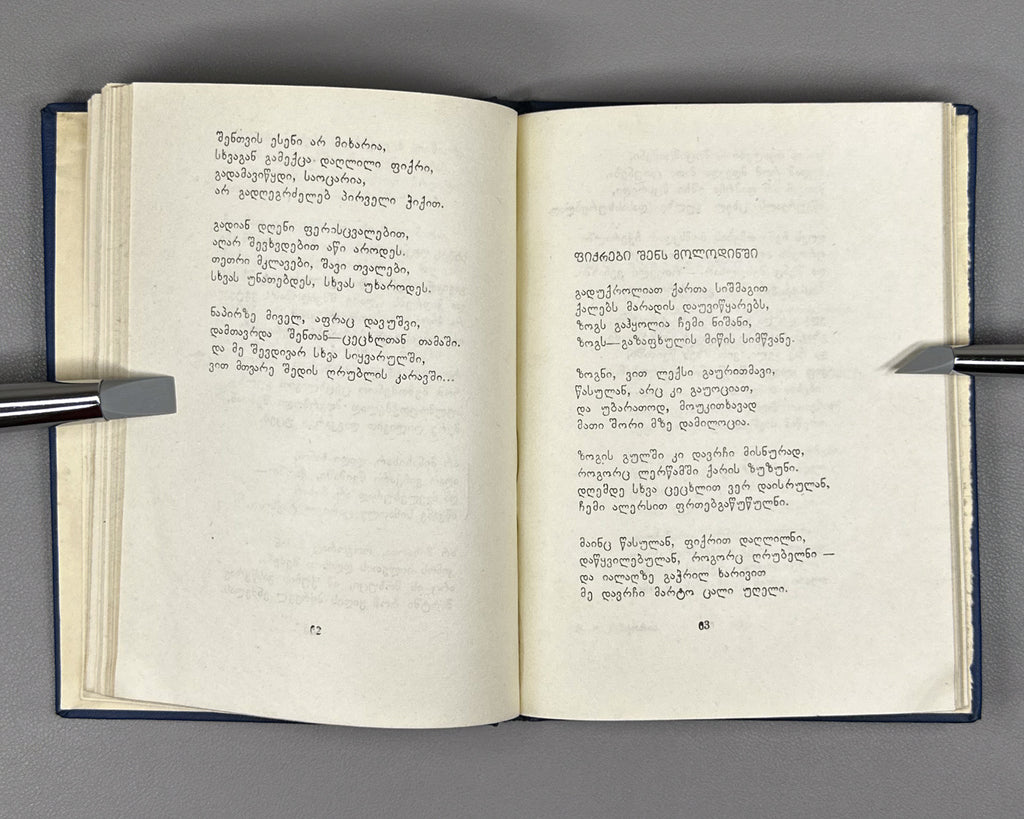 შენთვის ესენი არ მიხარია,
სხვაგან გამექცა დაღლილი ფიქრი,
გადამავიწყდი, საოცარია,
არ გადღეგრძელებ პირველი ჭიქით.
გადიან დღენი ფერისცვალებით,
აღარ შევხვდებით აწი აროდეს.
თეთრი მკლავები, შავი თვალები,
სხვას უნათებდეს, სხვას უხაროდეს.
ნაპირზე მიველ, აფრაც დავუშვი,
დამთავრდა შენთან—ცეცხლთან თამაში.
და მე შევდივარ სხვა სიყვარულში,
ვით მთვარე შედის ღრუბლის კარავში...
62
ფიქრები შენს მოლოდინში
გადუქროლიათ ქართა სიშმაგით
ქალებს მარადის დაუვიწყარებს,
ზოგს გაჰყოლია ჩემი ნიშანი,
ზოგს—გაზაფხულის მიწის სიმწვანე.
ზოგნი, ვით ლექსი გაურითმავი,
წასულან, არც კი გაუოციათ,
და უბარათოდ, მოუკითხავად
მათი შორი მზე დამილოცია.
ზოგის გულში კი დავრჩი მისნურად,
როგორც ლერწამში ქარის ზუზუნი.
დღემდე სხვა ცეცხლით ვერ დაისრულან,
ჩემი ალერსით ფრთებგაწუწულნი.
მაინც წასულან, ფიქრით დაღლილნი,
დაწყვილებულან, როგორც ღრუბელნი —
და იალაღზე გაჭრილ ხარივით
მე დავრჩი მარტო ცალი უღელი.
63